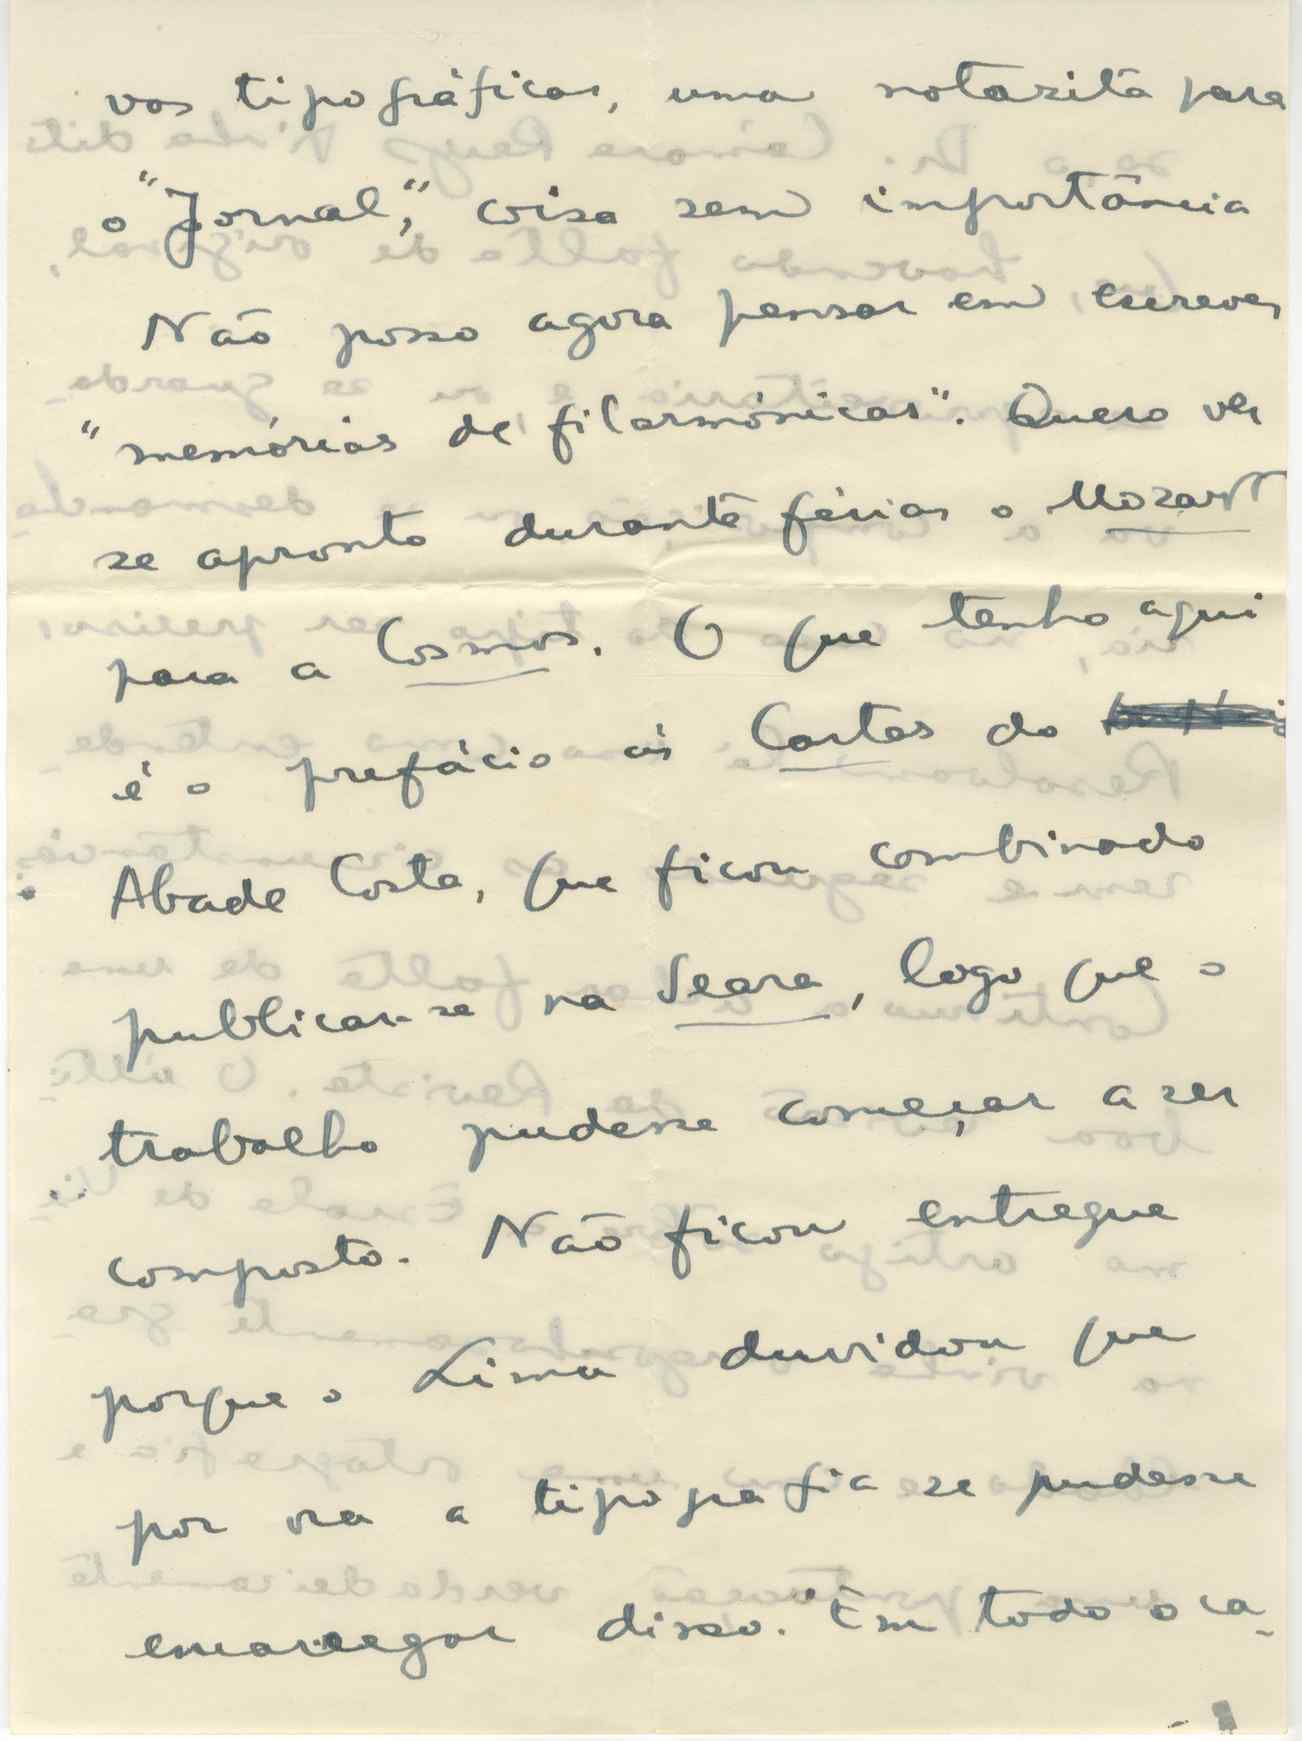 vos tipográficos, uma notazita para
o "Jornal", coisa sem importância
Não posso agora pensar em escrever
"memórias de filarmónicas". Quero ver
se apronto durante férias o Mozart
para a Cosmos. O que tenho aqui
é o prefácio às Cartas do
Abade Costa, que ficou combinado
publicar-se na Seara, logo que o
trabalho pudesse começar a ser
composto. Não ficou entregue
porque o Lima duvidou que
por ora a tipografia se pudesse
encarregar disso. Em todo o ca-